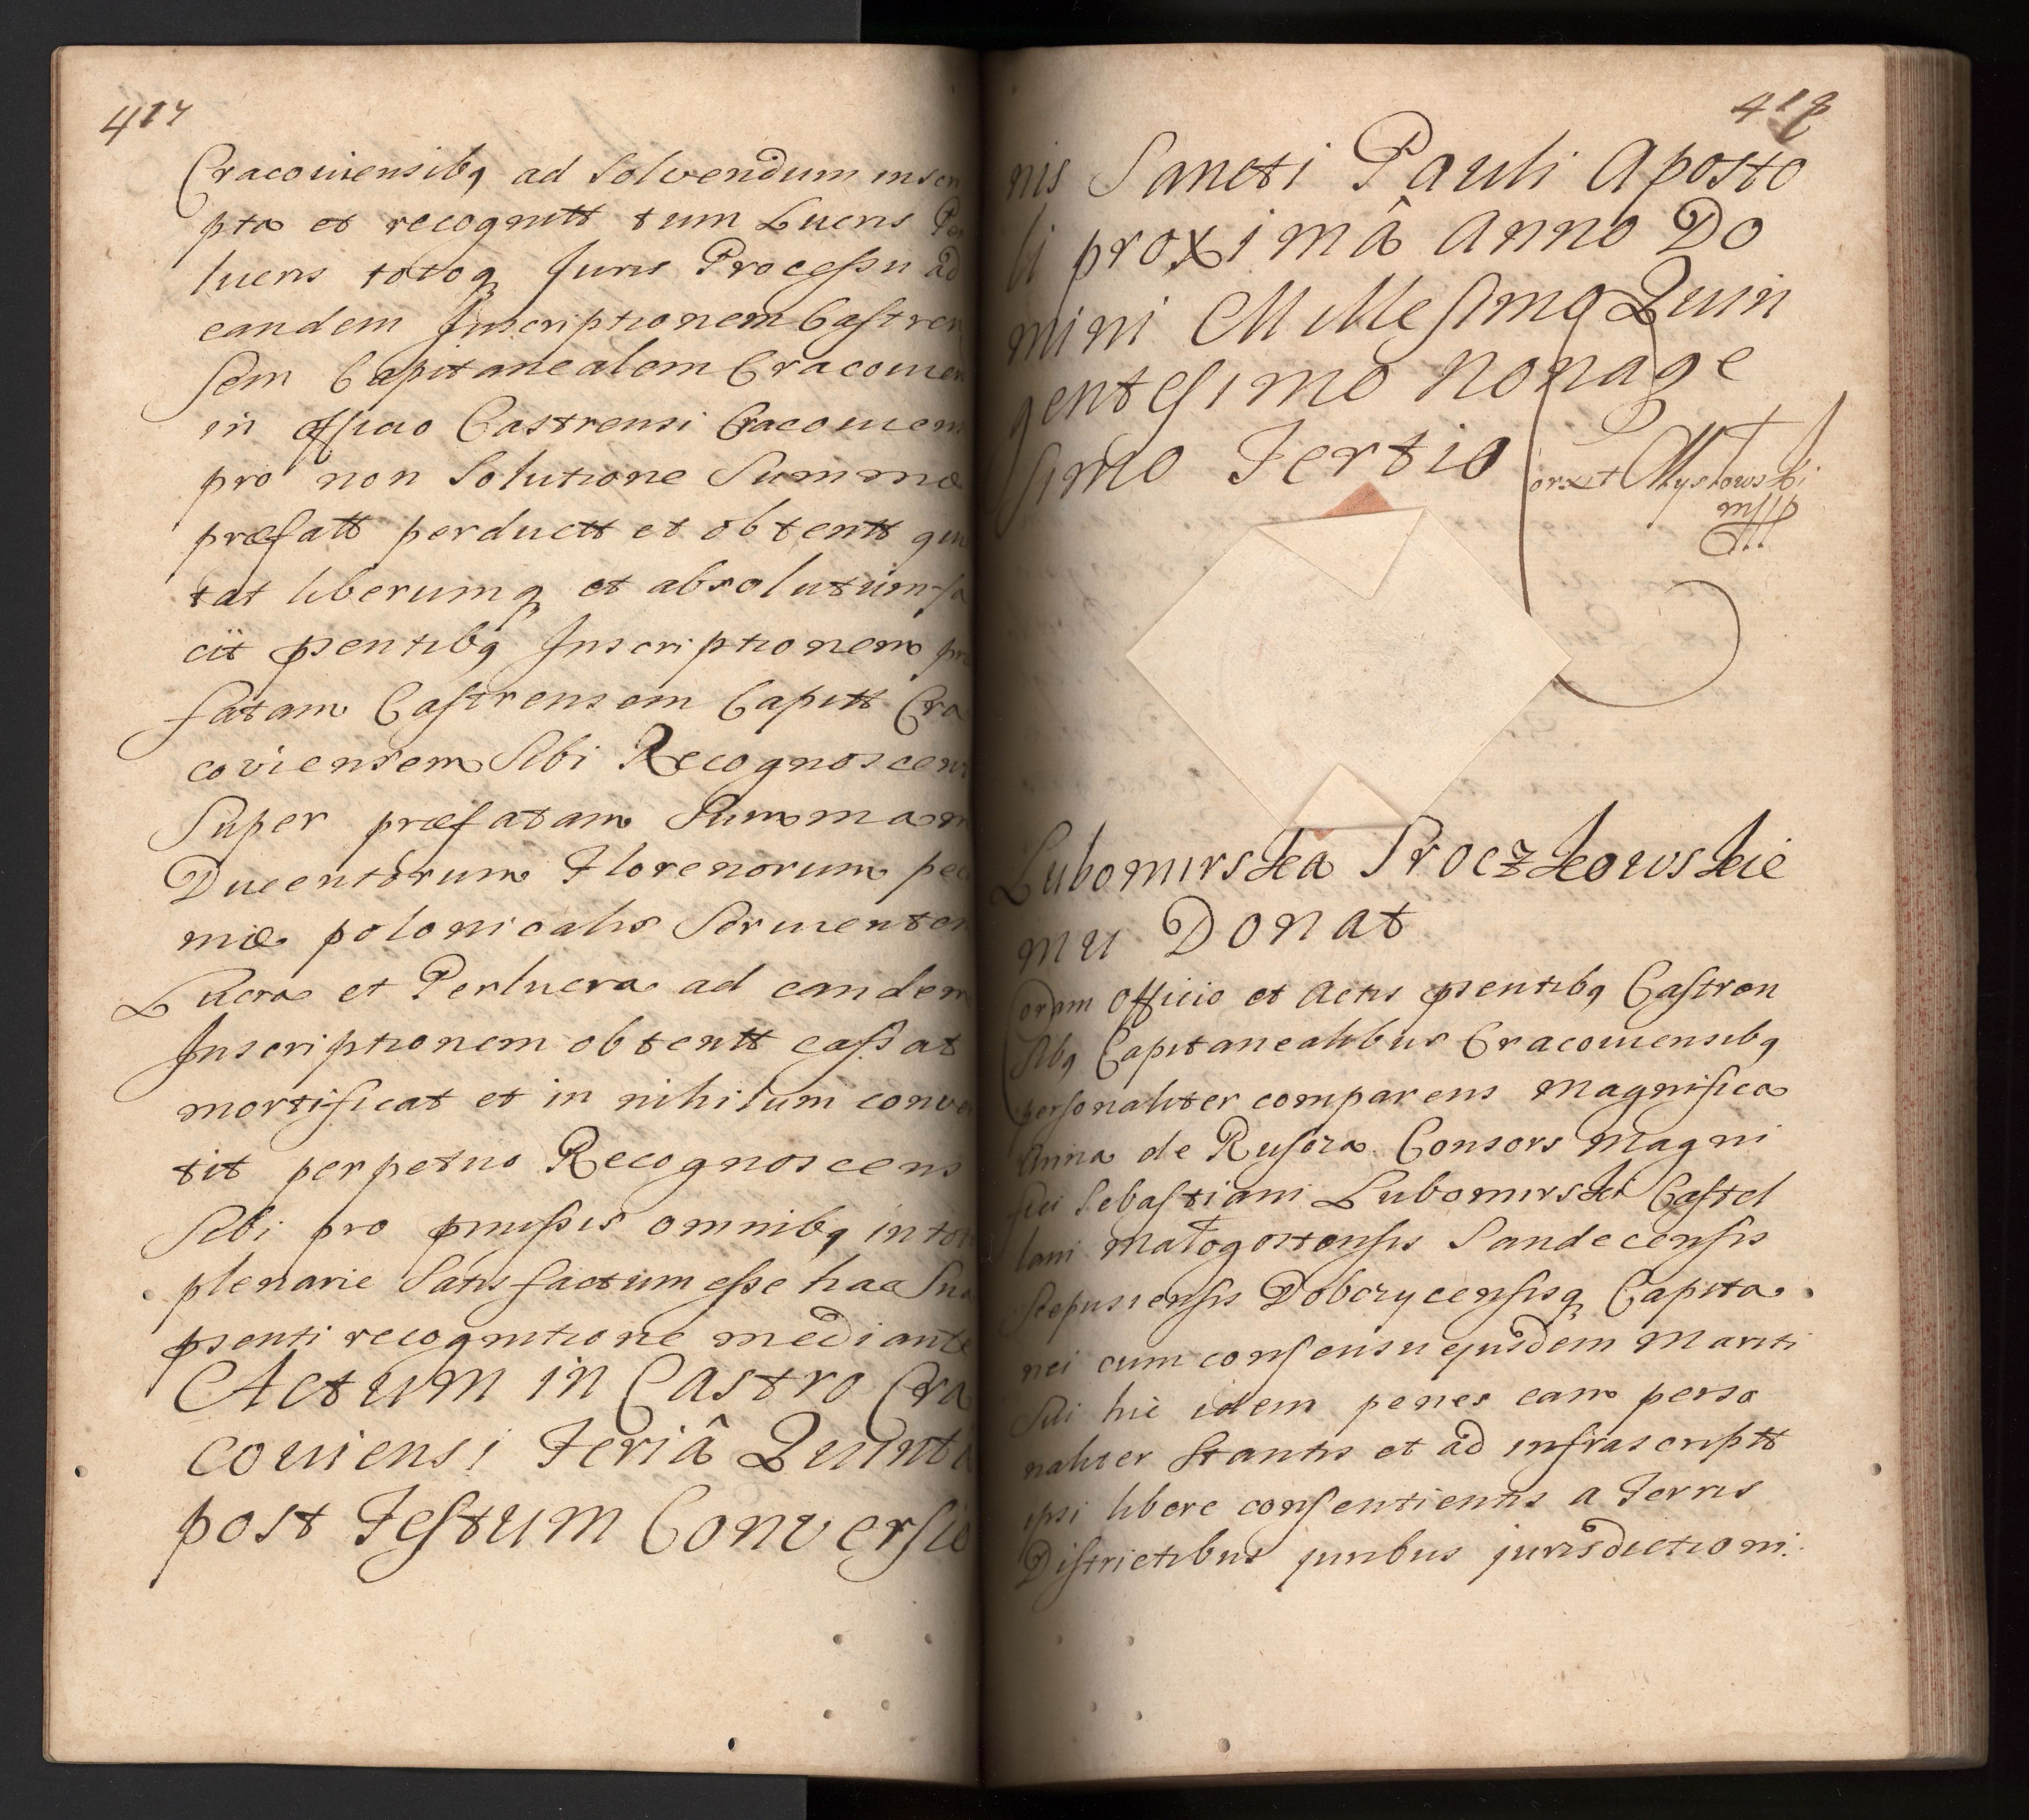 417
Cracouiensibq ad Solvendum inscri
pta et recognitt tum Lucris Per
lucris totoq Juris Processu ad
eandem Inscriptionem Castren
sem Capitanealem Cracouien
in officio Castrensi Cracouien
pro non Solutione Summæ
præfatt perductt et obtentt qui
tat liberumq et absolutum fa
cit psentibq Inscriptionem præ
fatam Castrensem Capitt Cra
coviensem Sibi Recognoscent
Super præfatam Summam
Ducentorum Florenorum pecu
niæ polonicalis Seruientem
Lucra et Perlucra ad eandem
Inscriptionem obtentt cassat
mortificat et in nihilum conver
tit perpetuo Recognoscens
Sibi pro pmissis omnibq in toto
plenarie Satisfactum esse hac Sua
psenti recognitione mediante
Actum in Castro Cra
couiensi Feriâ Quinta
post Festum Conversio
418
nis Sancti Pauli Aposto
li proximâ Anno Do
mini Millesimo Quin
gentesimo Nonage
simo Tertio
orxit Mysłowski
mpp
Lubomirska Proczkowskie
mu Donat
Coram Officio et Actis psentibq Castren
Sibq Capitanealibus Cracouiensibq
personaliter comparens Magnifica
Anna de Ruscza Consors Magni
fici Sebastiani Lubomirski Castel
lani Małogostensis Sandecensis
Scepusiensis Dobczycensisq Capita
nei cum consensu ejusdem Mariti
Sui hic idem penes eam perso
naliter Stantis et ad infrascriptt
ipsi libere consentientis a Terris
Districtibus juribus jurisdictioni